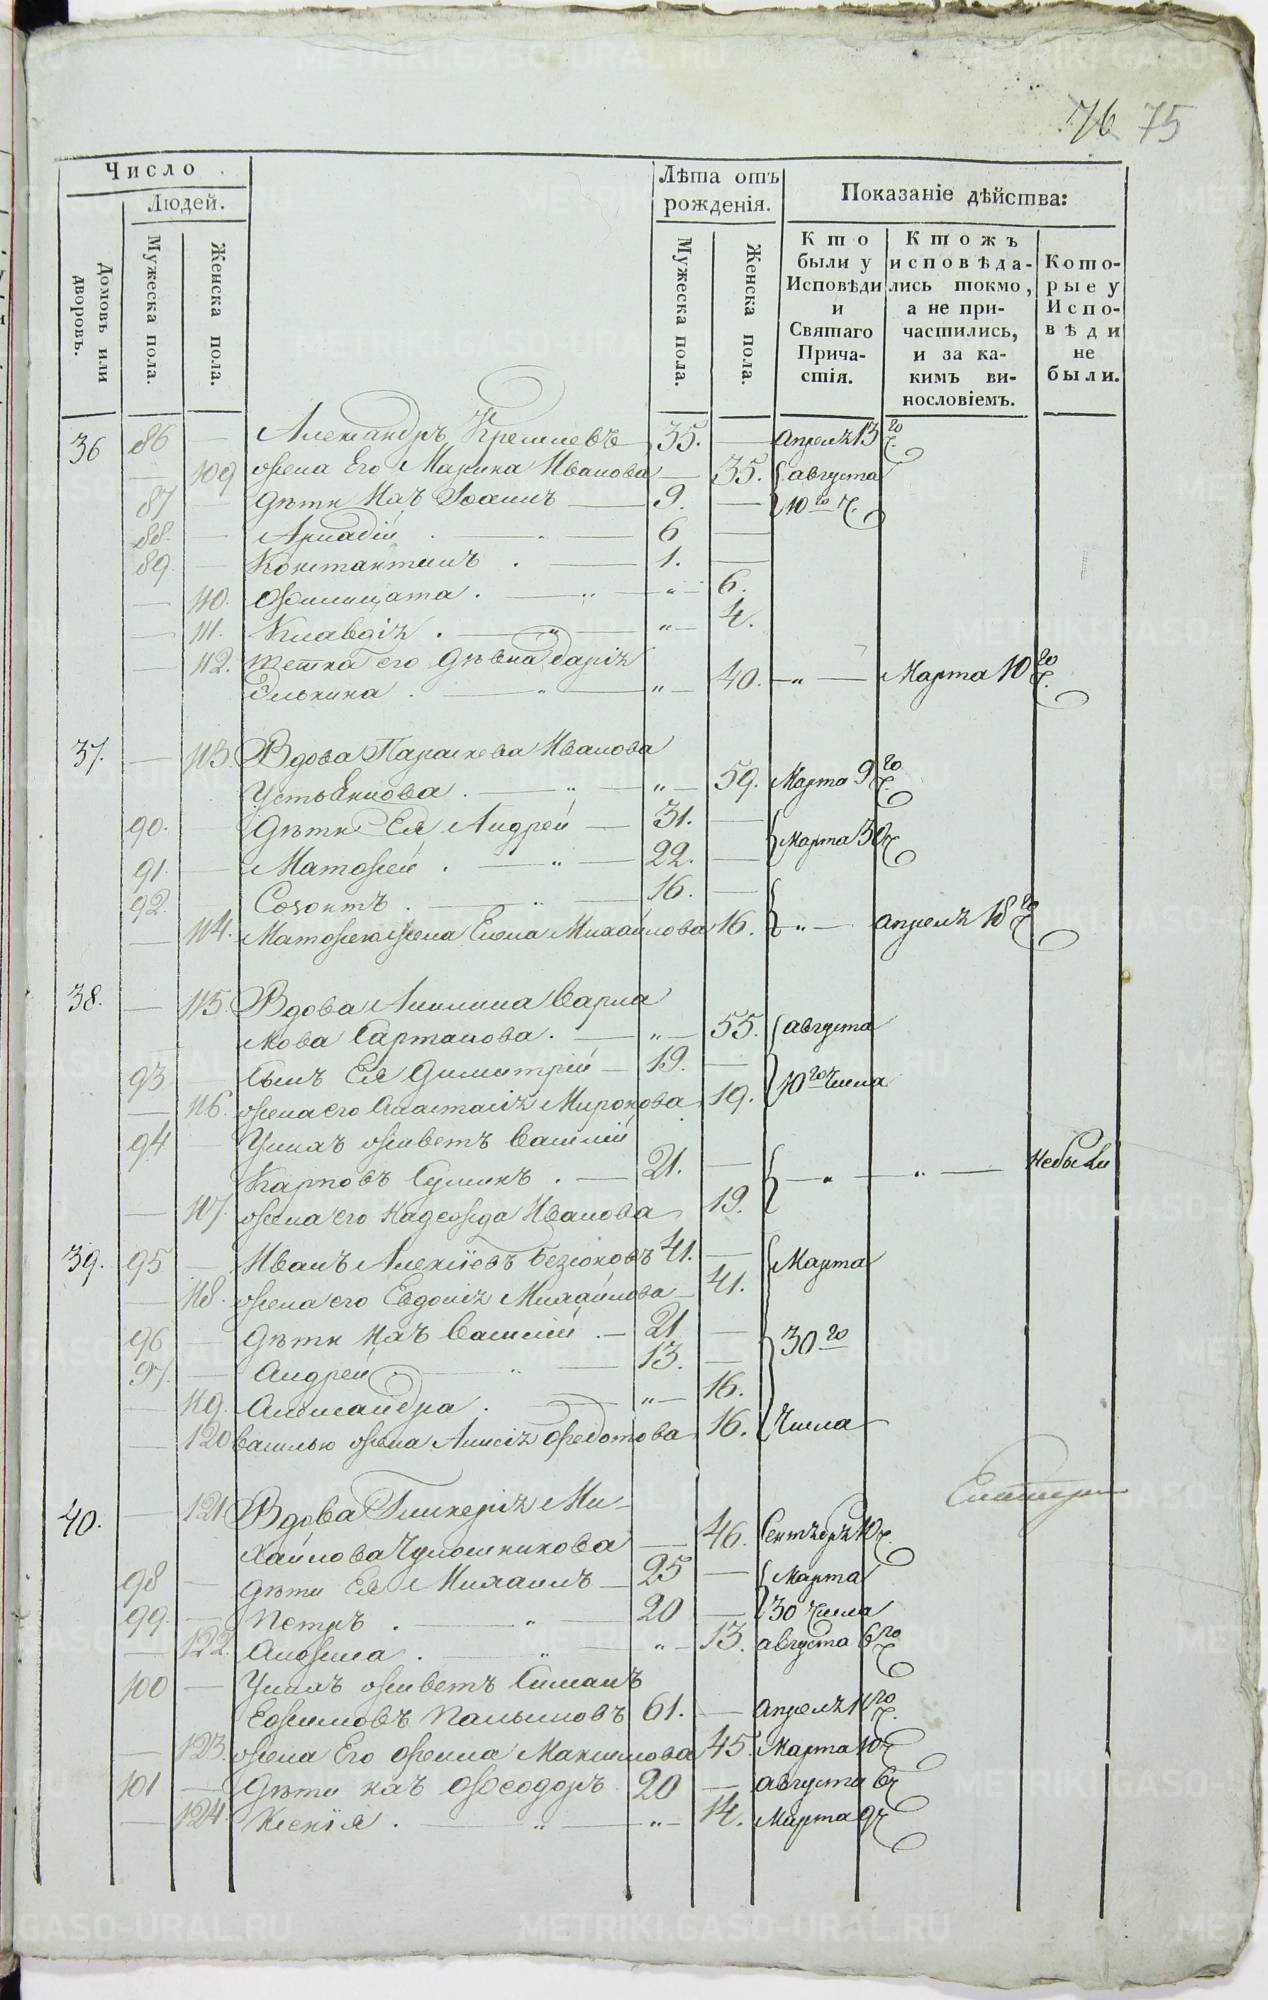 76 75
Число
Людей.
Домовъ или дворовъ.
Мужеска пола.
Женска пола.
Лѣта отъ рожденія.
Мужеска пола.
Женска пола.
Показаніе дѣйства:
Кто были у Исповѣди и Святаго Причастія.
Ктожъ исповѣдались токмо, а не причастились, и за какимъ винословіемъ.
Которые у Исповѣди не были.
36 86 — Александръ 35. — Апреля 13 го ч.
— 109 жена Его Марина Иванова — 35. августа
87 — Дѣти Ихъ Іоаннъ — 9. — 10 го ч.
88. — Аркадій — 6 —
89. — Константинъ . — 1. —
— 110. Филицата . — „ — 6.
— 111. Клавдія . — „ — 4.
— 112. тетка его Дѣвка Дарія
Элькина . — „ — 40. — „ — Марта 10 го ч.
37. — 113. Вдова Параскева Иванова
Устьянцова . — „ — 59. Марта 9 го ч.
90. — Дѣти Ея Андрей — 31. —
91. — Матфей . — 22. — Марта 30 ч
92. — Созонтъ . — 16. —
— 114. Матфею жена Елена Михайлова 16. — „ — апреля 18 го ч
38. — 115. Вдова Акилина Варла
мова Сартакова . — „ — 55. августа
93 — Сынъ Ея Димитрій — 19. —
— 116. жена его Анастасія Миронова 19. 10 го Числа
94 — У нихъ живетъ Василій
Карповъ — 21. — — „ — „ — не были
— 117. жена его Надежда Иванова 19.
39. 95 — Иванъ Алексіевъ Безюковъ 41. — Марта
— 118. жена его Евдокія Михайлова — 41.
96 — Дѣти Ихъ Василій . — 21 — 30 го
97. — Андрей — 13. —
— 119. Александра . — „ — 16.
— 120 Василью жена Анисія Федотова 16. Числа
40. — 121 Вдова Гликерія Ми-
хайлова Чумошникова — 46. Сентября 10 ч.
98 — Дѣти Ея Михаилъ — 25 — Марта
99. — Петръ . — „ — 20 — 30 Числа
— 122. Анфиса . — „ — 13. августа 6 го ч
100 — У нихъ живетъ Симанъ
Ефимовъ Палкиновъ 61. — Апреля го ч.
— 123. жена Его Фекла Максимова 45. Марта 10 ч
101 — Дѣти ихъ Феодоръ 20 — августа 6 ч
— 124. Ксенія . — „ — „ — 14. Марта 9 ч
METRIKI.GASO-URAL.RU